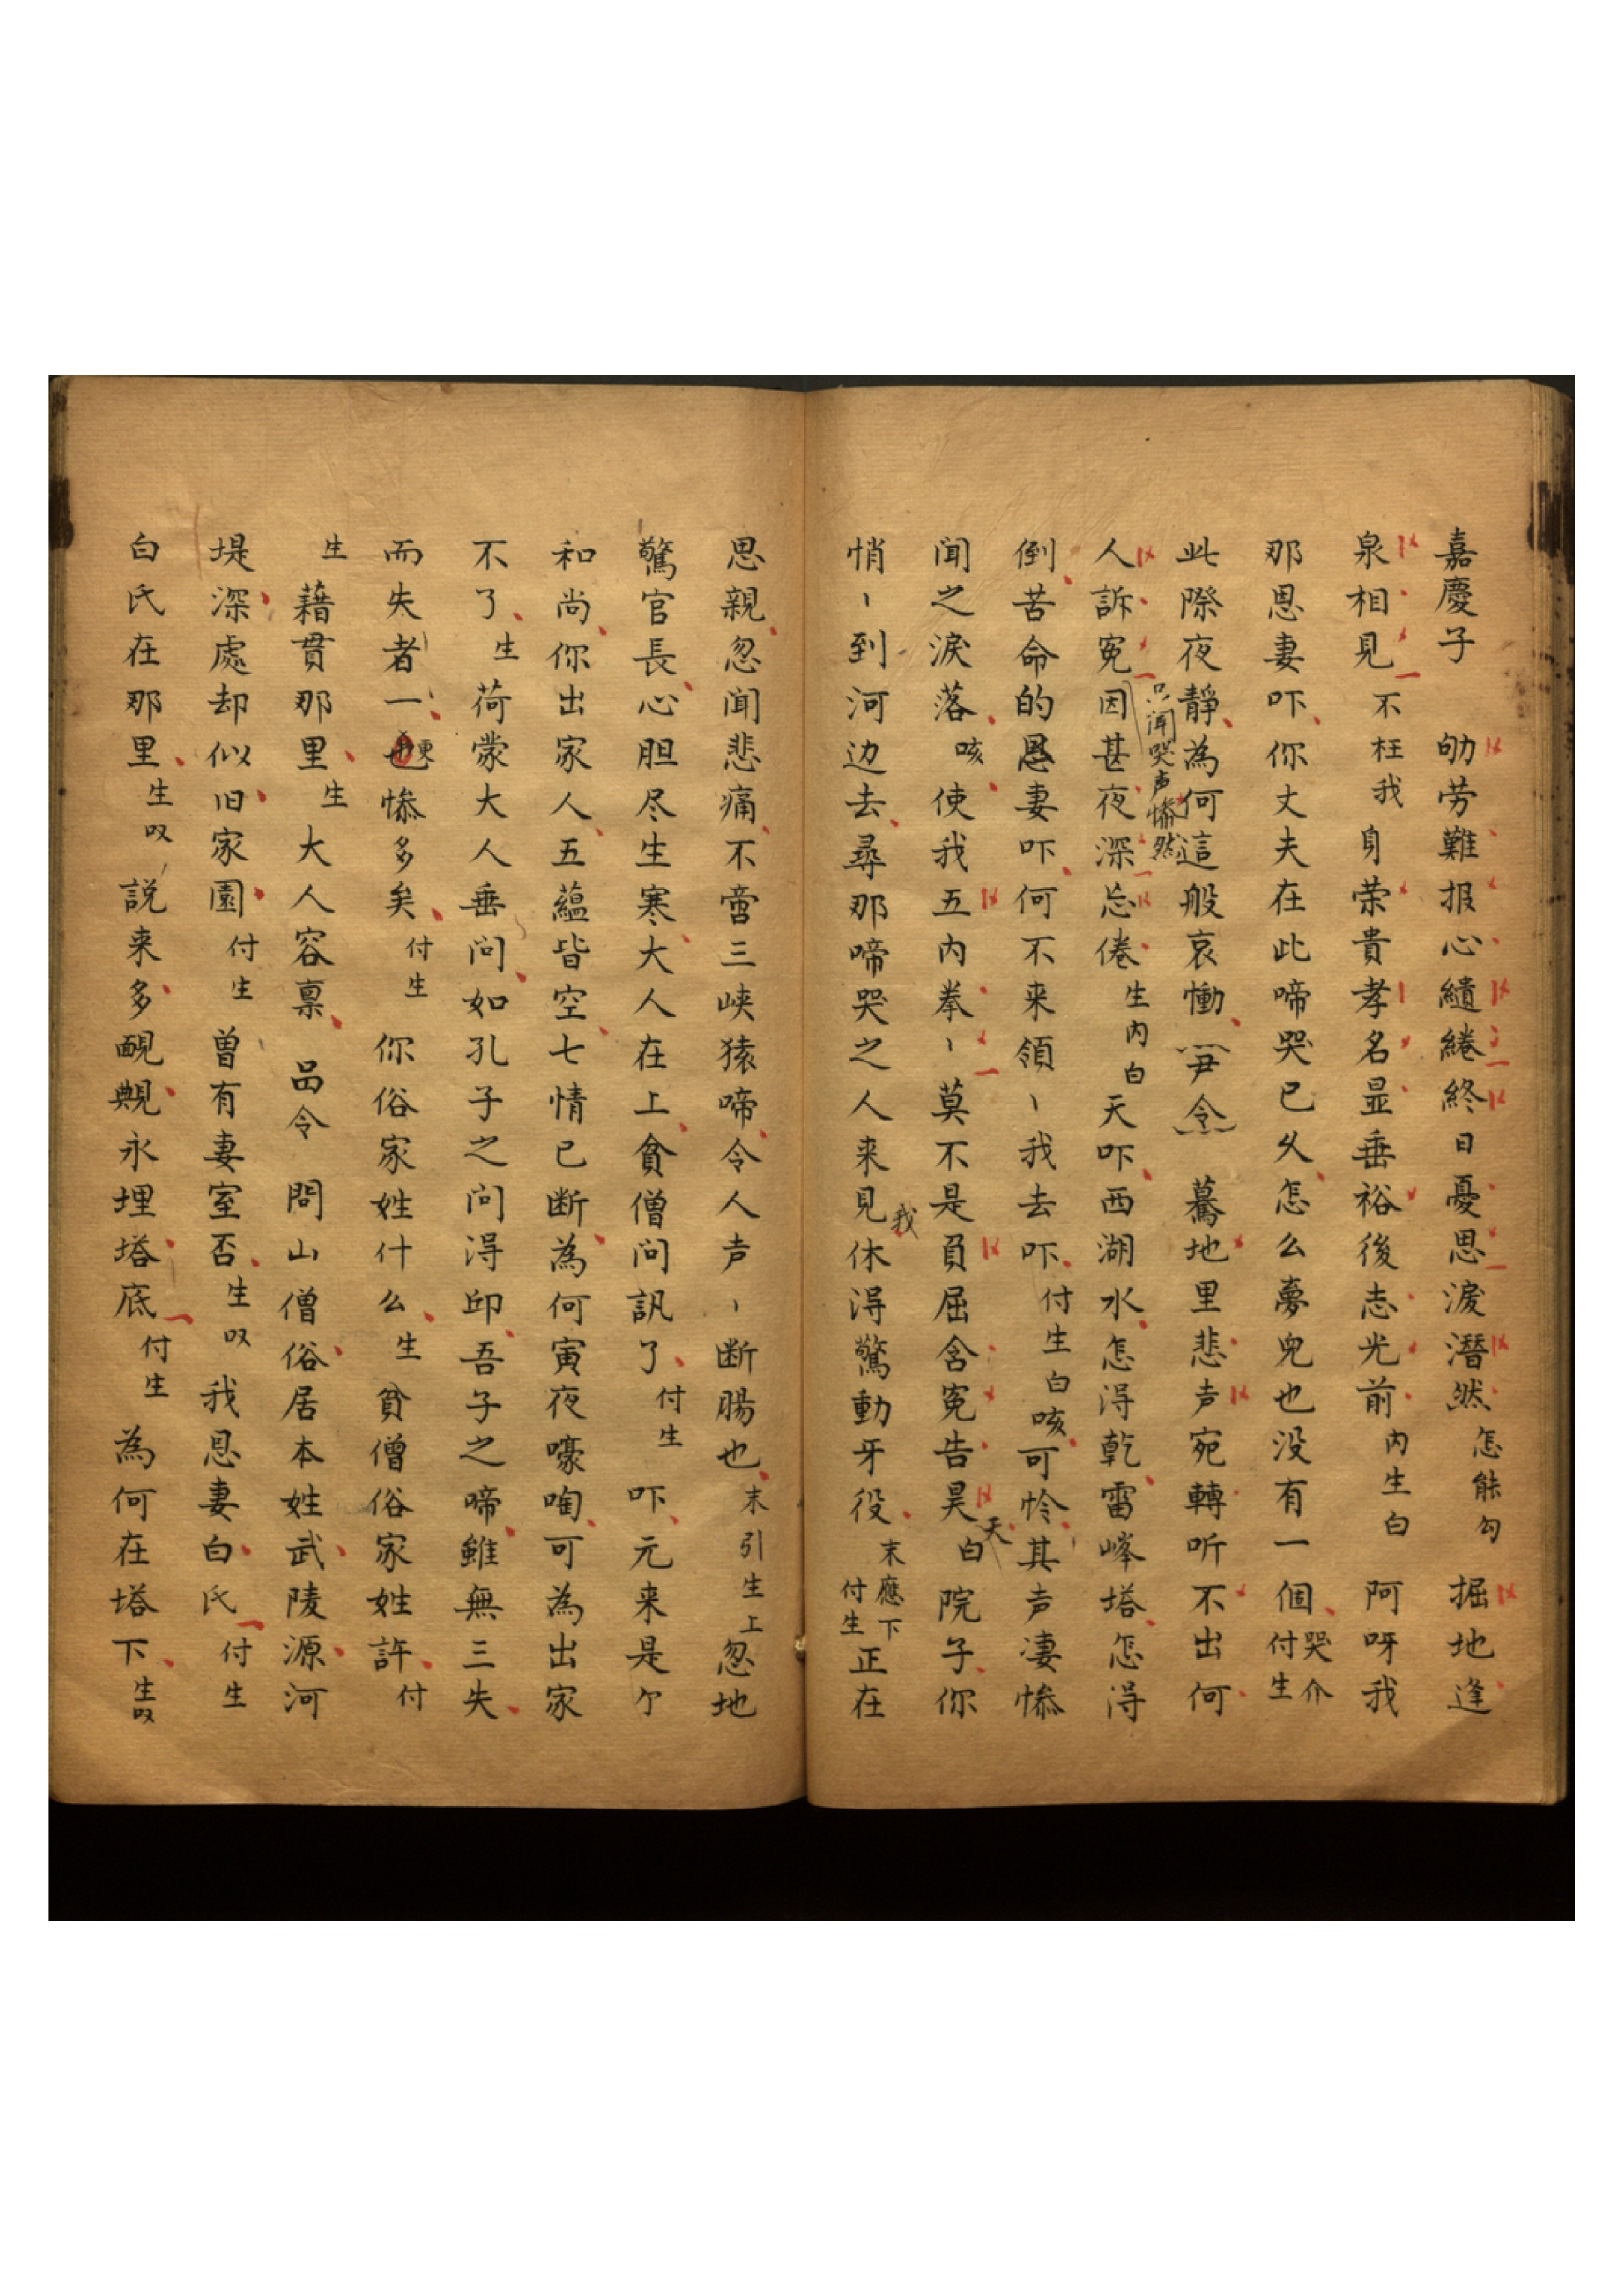 嘉慶子　劬劳難报心繾綣終日憂思淚潛然怎能勾掘地逢
泉相見不枉我身荣貴孝名显垂裕後志光前内生白阿呀我
那恩妻吓你丈夫在此啼哭已久怎么夢兒也没有一個哭介付生
此際夜靜為何這般哀慟尹令　驀地里悲声宛轉听不出何
只聞哭声惨然
人訴冤因甚夜深忘倦生内白天吓西湖水怎得乾雷峰塔怎得
倒苦命的恩妻吓何不来領丶我去吓付生白咳可怜其声凄惨
聞之淚落咳使我五内拳丶莫不是負屈含冤告昊天白院子你
悄丶到河边去尋那啼哭之人来見我休得驚動牙役末應下付生正在
思親忽闻悲痛不啻三峡猿啼令人声丶断腸也末引生上忽地
驚官長心胆尽生寒大人在上貧僧问訊了付生吓元来是个
和尚你出家人五蕴皆空七情已断為何寅夜嚎啕可為出家
不了生荷蒙大人垂问如孔子之问得邱吾子之啼雖無三失
而失者一更惨多矣付生你俗家姓什么生貧僧俗家姓許付
生藉貫那里生大人容禀　品令　問山僧俗居本姓武陵源河
堤深處却似旧家園付生曾有妻室否生叹我恩妻白氏付生
白氏在那里生叹説来多靦覥永埋塔底付生為何在塔下生叹